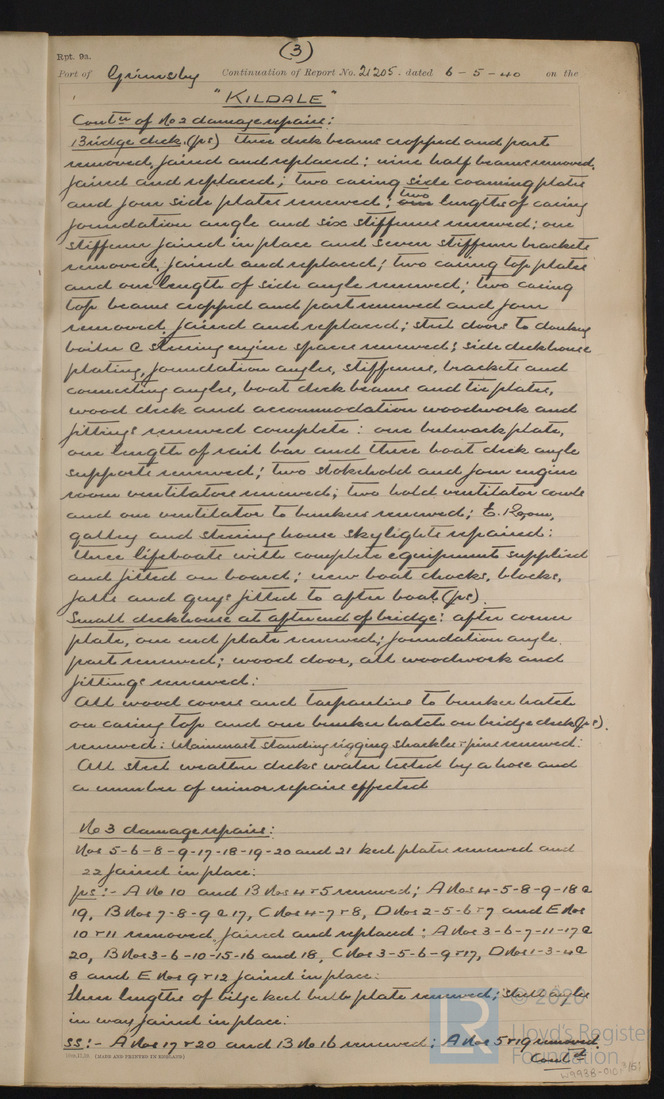 (3)
Rpt. 9a.
Port of Grimsby Continuation of Report No. 21205. dated 6-5-40 on the
"KILDALE"
Contn of No 2 damage repairs:
Bridge deck. (ps) three deck beams cropped and part
removed, faired and replaced: nine half beams removed,
faired and replaced; two casing side coaming plates
and four side plates renewed; two lengths of casing
foundation angle and six stiffeners renewed; one
stiffener faired in place and seven stiffener brackets
removed, faired and replaced; two casing top plates
and one length of side angle renewed; two casing
top beams cropped and part renewed and four
removed, faired and replaced; steel doors to donkey
boiler & steering engine spaces renewed; side deckhouse
plating, foundation angles, stiffeners, brackets and
connecting angles, boat deck beams and tie plates,
wood deck and accommodation woodwork and
fittings renewed complete: one bulwark plate,
one length of rail bar and three boat deck angle
supports renewed; two stokehold and four engine
room ventilators renewed; two hold ventilator cowls
and one ventilator to bunkers renewed; E. Room,
galley and steering house skylights repaired:
three lifeboats with complete equipment supplied
and fitted on board; new boat chocks, blocks,
falls and guys fitted to after boat (ps).
Small deckhouse at after end of bridge: after corner
plate, one end plate renewed; foundation angle
part renewed; wood door, all woodwork and
fittings renewed:
All wood covers and tarpaulins to bunker hatch
on casing top and one bunker hatch on bridge deck (ps).
renewed: Mainmast standing rigging shackles & pins renewed:
All steel weather decks water tested by a hose and
a number of minor repairs effected
No 3 damage repairs:
Nos 5-6-8-9-17-18-19-20 and 21 keel plates renewed and
22 faired in place:
ps:- A No 10 and B Nos 4 & 5 renewed; A Nos 4-5-8-9-18 &
19, B Nos 7-8-9 & 17, C Nos 4-7 & 8, D Nos 2-5-6 & 7 and E Nos
10 & 11 removed, faired and replaced: A Nos 3-6-7-11-17 &
20, B Nos 3-6-10-15-16 and 18, C Nos 3-5-6-9 & 17, D Nos 1-3-4 &
8 and E Nos 9 & 12 faired in place:
three lengths of bilge keel bulb plate renewed; shell angles
in way faired in place:
ss:- A Nos 17 & 20 and B No 16 renewed; A Nos 5 & 19 removed.
Contd
(MADE AND PRINTED IN ENGLAND)
© 2020
LR
Lloyd's Register
Foundation
W993B-0101 3/5